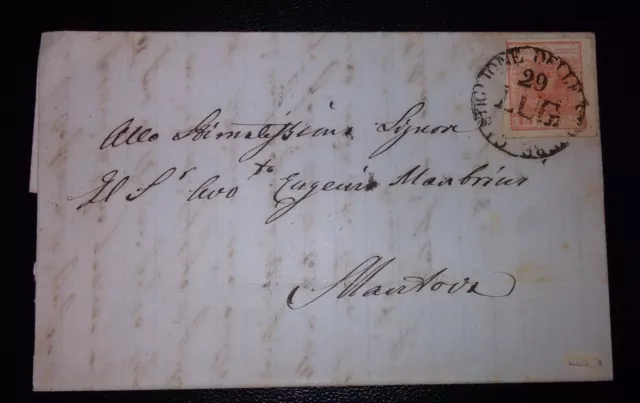 CASTIGLIONE DELLE STIVIERE
29
LUG.
Allo Stimatissimo Signor
Il Sr Avvto Eugenio Manbrini
Mantova